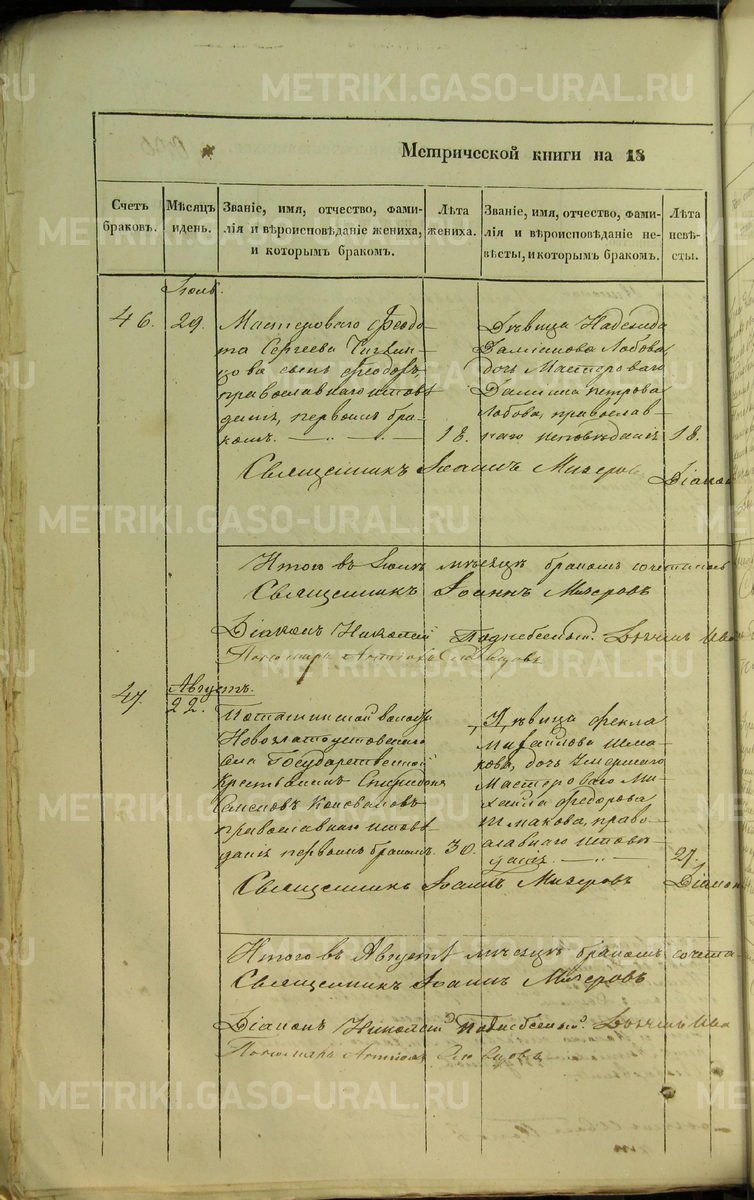 METRIKI.GASO-URAL.RU
Метрической книги на 18
Счетъ браковъ.
Мѣсяцъ идень.
Званіе, имя, отчество, фами-
лія и вѣроисповѣданіе жениха,
и которымъ бракомъ.
Лѣта жениха.
Званіе, имя, отчество, фами-
лія и вѣроисповѣданіе не-
вѣсты, и которымъ бракомъ.
Лѣта невѣ-
сты.
Іюль.
46.
29.
Мастероваго Ѳеодо-
та Сергеева
сынъ Ѳеодоръ,
православнаго исповѣ
данія, первымъ бра-
комъ.
18.
Дѣвица Надежда
Даміанова Лобова,
дочь Мастероваго
Даміана Петрова
Лобова, православ-
наго исповѣданія
18.
Священникъ Іоаннъ
Діакон
Итого въ Іюлѣ мѣсяцѣ бракомъ сочетались
Священникъ Іоаннъ
Діаконъ Николай Поднебесный. Дьячекъ Ива
Пономарь
47.
Августъ.
22.
волости
Новозлатоустовскаго
села Государственной
Крестьянинъ Спиридонъ
Семеновъ Коноваловъ
православнаго исповѣ
данія первымъ бракомъ.
30.
Дѣвица Ѳекла
Михайлова Шма-
кова, дочь умершаго
Мастероваго Ми-
хаила Ѳедорова
Шмакова, право-
славнаго исповѣ-
данія.
27.
Священникъ Іоаннъ
Діакон
Итого въ Августѣ мѣсяцѣ бракомъ сочета-
Священникъ Іоаннъ
Діаконъ Николай Поднебесный. Дьячекъ Ива
Пономарь